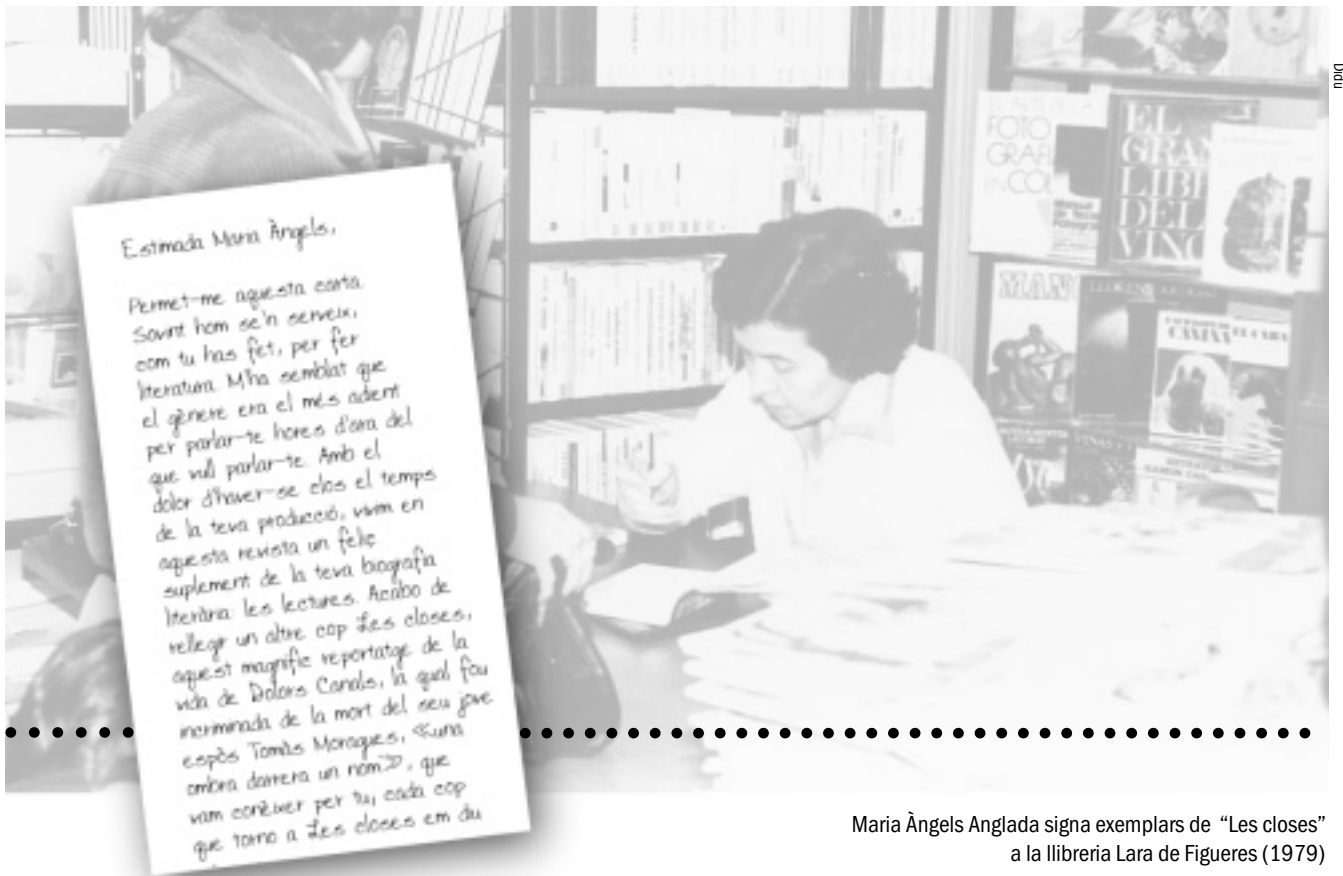 Didu
EL ARTE DE LA
FOTO
GRAFI
EN COL
EL
GRAN
LIBR
DEL
VINO
MAN
LLORENS
CANINA
EL CABA
Estimada Maria Àngels,
Permet-me aquesta carta
Sovint hom se'n serveix,
com tu has fet, per fer
literatura. M'ha semblat que
el gènere era el més adient
per parlar-te hores d'ara del
que vull parlar-te. Amb el
dolor d'haver-se clos el temps
de la teva producció, vivim en
aquesta revista un feliç
suplement de la teva biografia
literària: les lectures. Acabo de
rellegir un altre cop Les closes,
aquest magnífic reportatge de la
vida de Dolors Canals, la qual fou
incriminada de la mort del seu jove
espòs Tomàs Moragues, «una
ombra darrera un nom», que
vam conèixer per tu, cada cop
que torno a Les closes em du
Maria Àngels Anglada signa exemplars de “Les closes”
a la llibreria Lara de Figueres (1979)